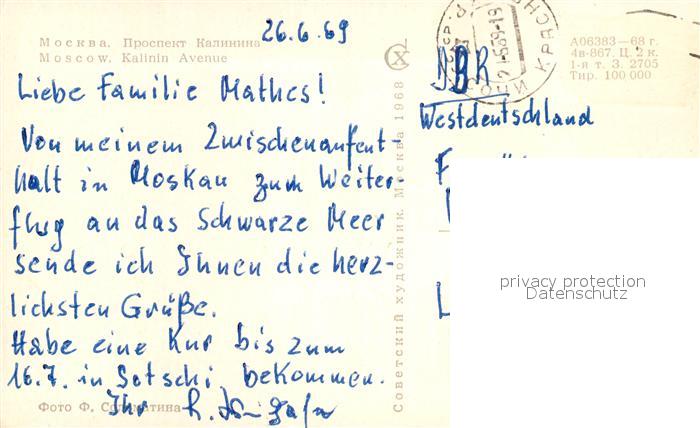 26.6.69
Москва. Проспект Калинина
Moscow. Kalinin Avenue
Liebe Familie Mathes!
Von meinem Zwischenaufent-
halt in Moskau zum Weiter-
flug an das Schwarze Meer
sende ich Ihnen die herz-
lichsten Grüße.
Habe eine Kur bis zum
16.7. in Sotschi bekommen.
Ihr
Фото Ф. Соломатина
Советский художник. Москва 1968
СОЧИ КРАСНО
А06383—68 г.
4в-867. Ц. 2 к.
1-я т. З. 2705
Тир. 100 000
DBR
Westdeutschland
privacy protection
Datenschutz